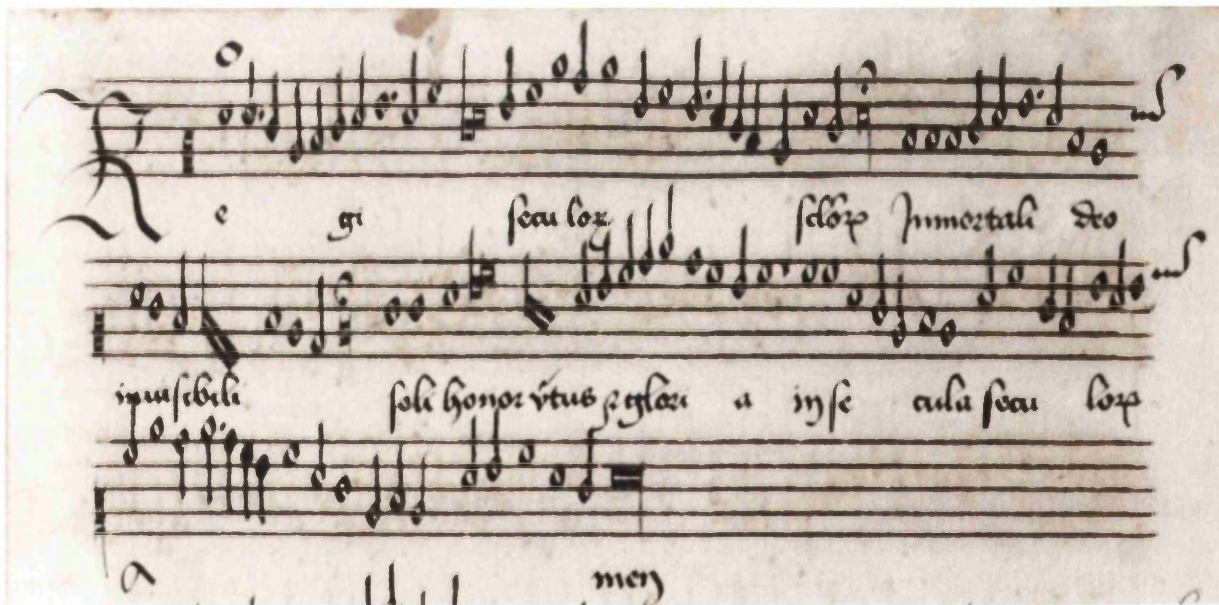 Regi seculor sclorp Immortali deo
inuisibili soli honor vtus et glori a in se cula secu lorp
A men